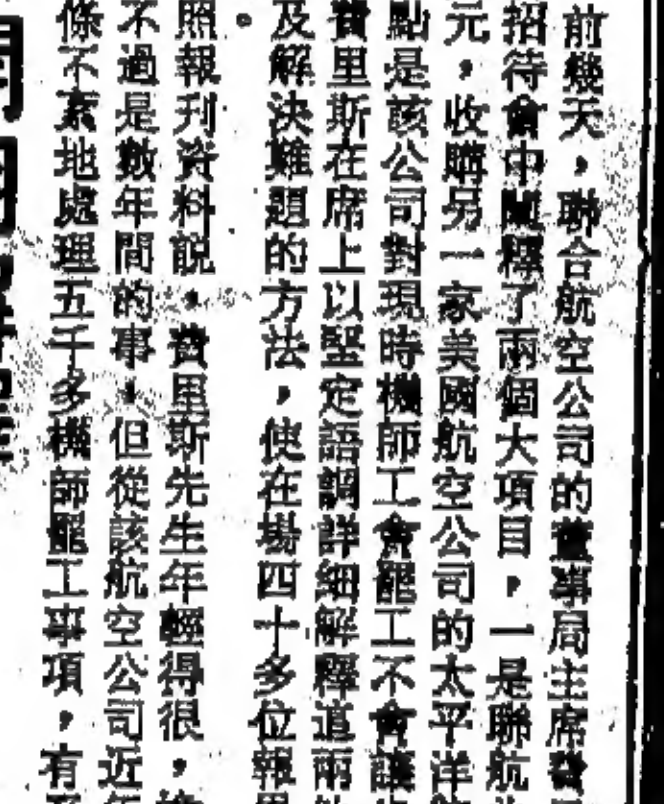 前幾天，聯合航空公司的董事局主席費
招待會中闡釋了兩個大項目，一是聯航
元，收購另一家美國航空公司的太平洋
點是該公司對現時機師工會罷工不會讓
費里斯在席上以堅定語調詳細解釋道兩
及解決難題的方法，使在場四十多位報
。
照報刊資料說，費里斯先生年輕得很，
不過是數年間的事，但從該航空公司近
條不紊地處理五千多機師罷工事項，有